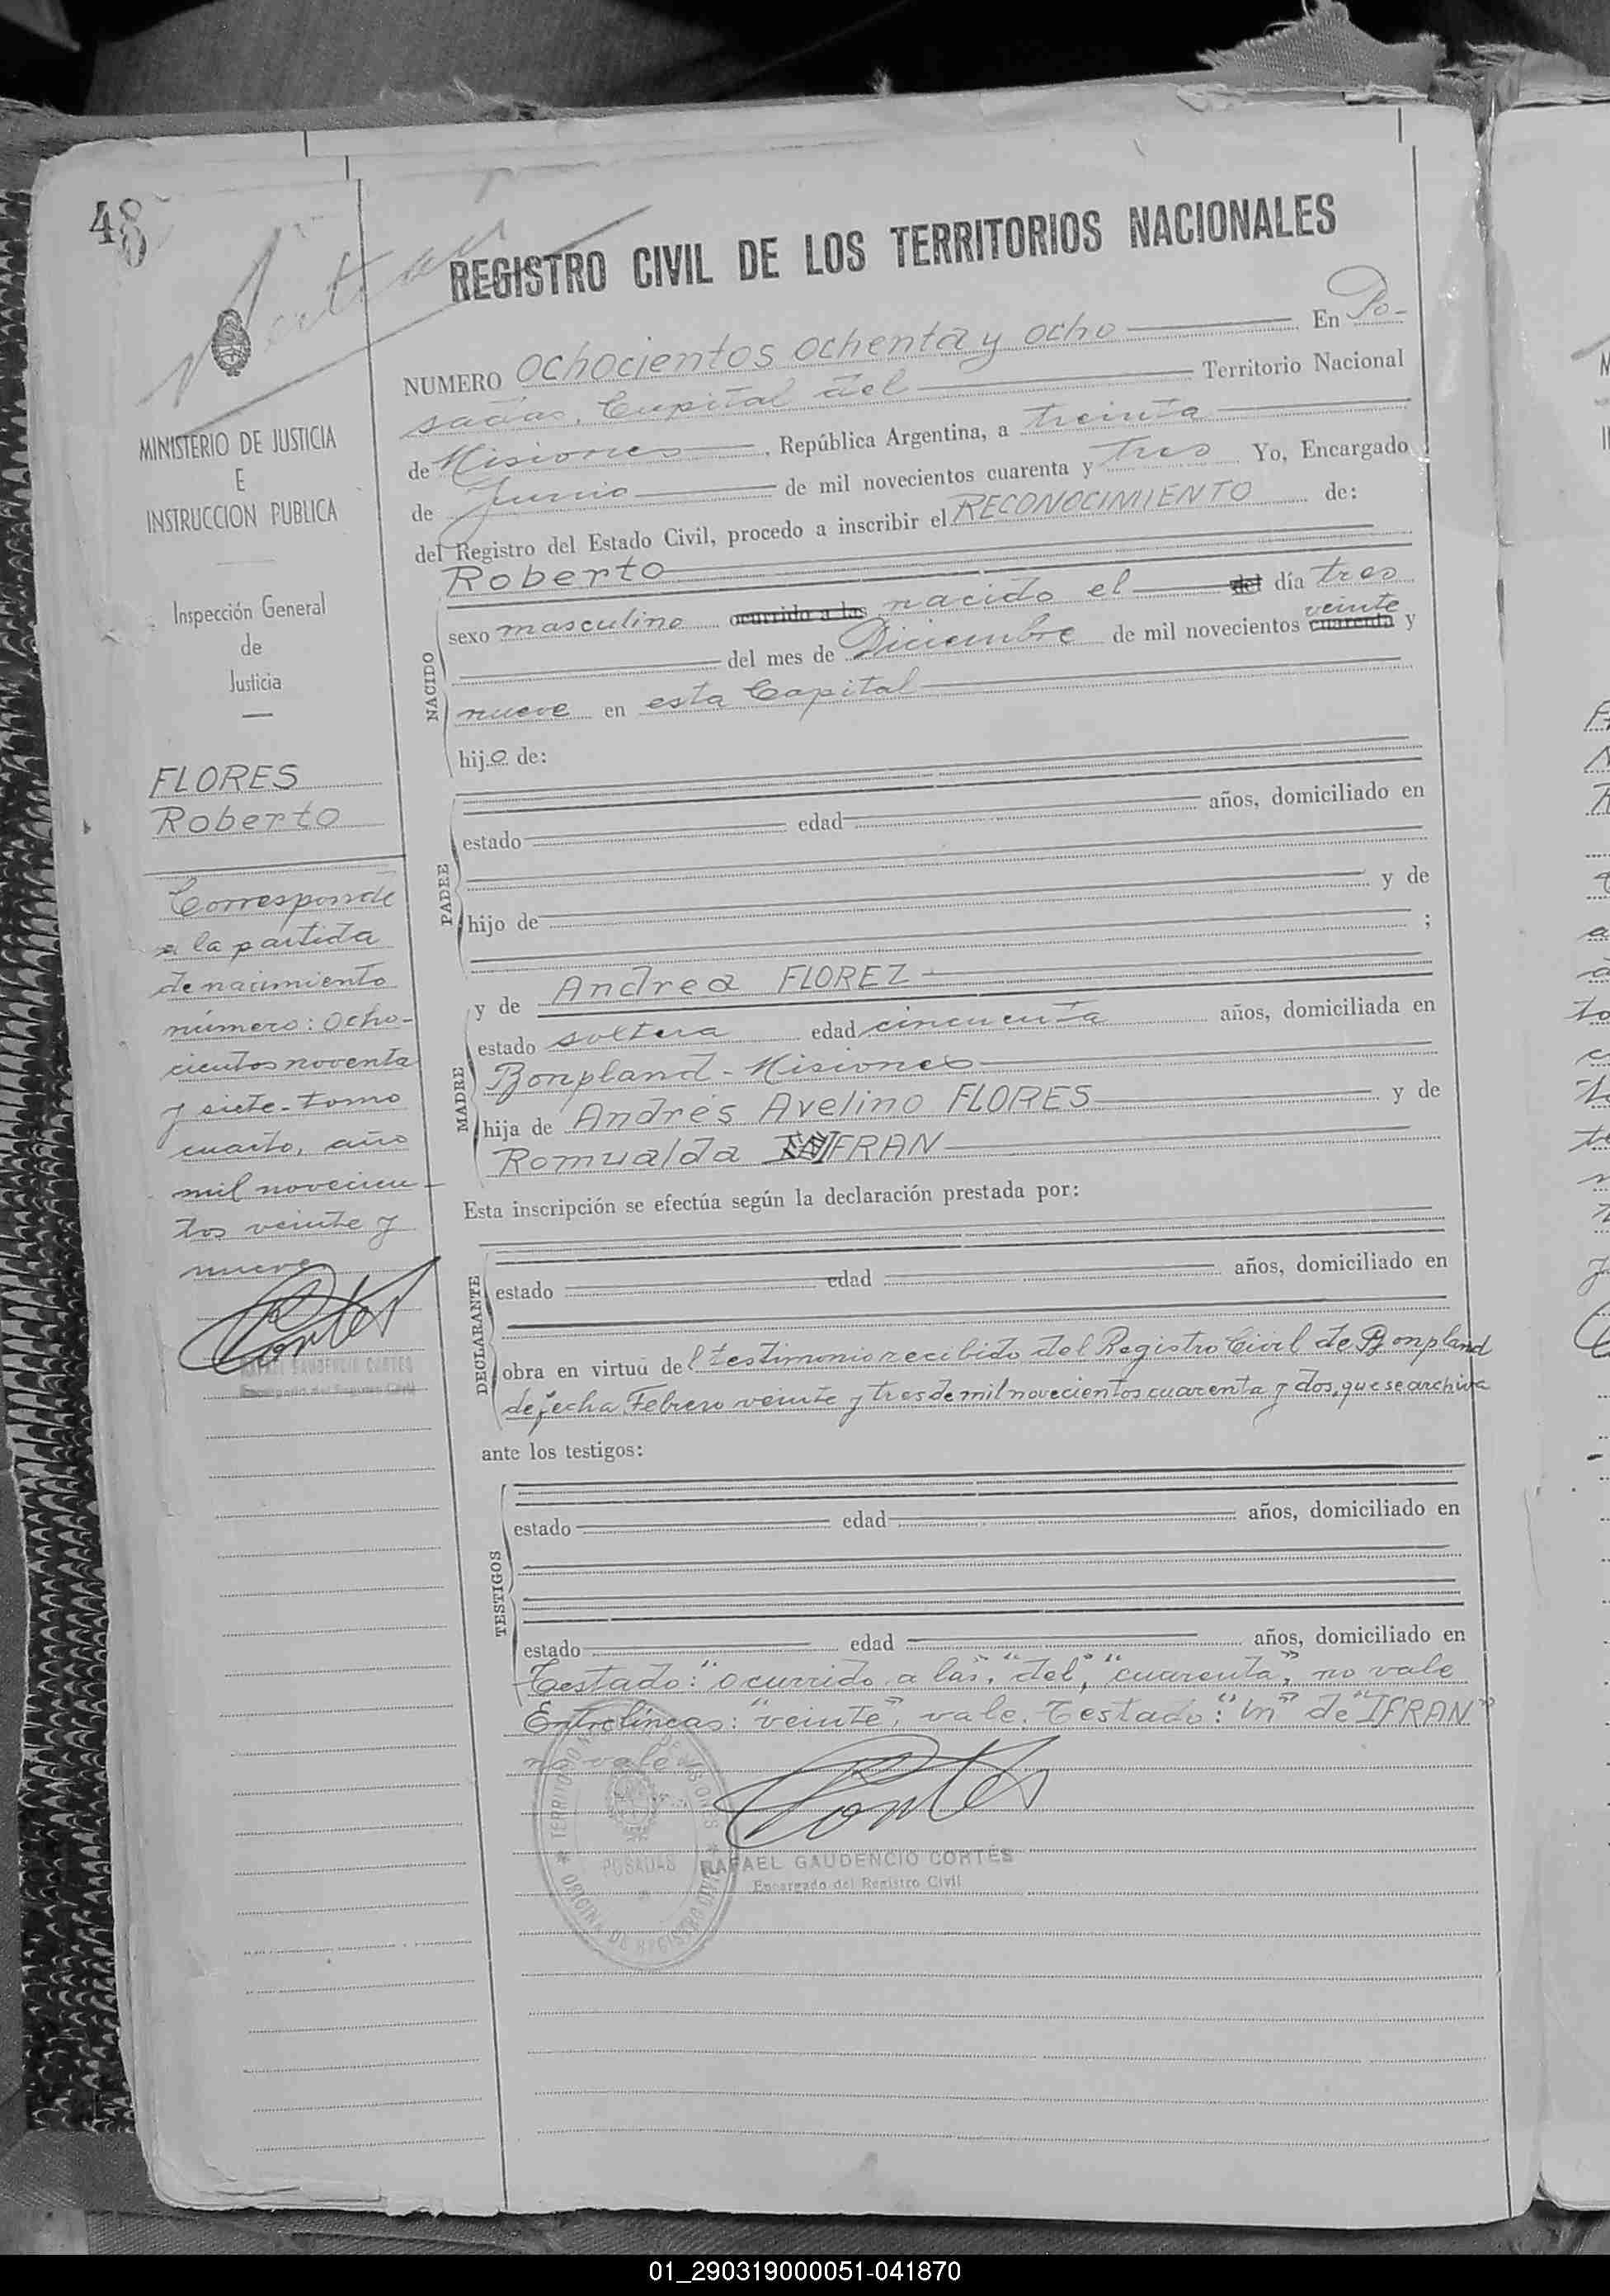 48
Natural
REGISTRO CIVIL DE LOS TERRITORIOS NACIONALES
NUMERO ochocientos ochenta y ocho En Po-
sadas, Capital del Territorio Nacional
de Misiones, República Argentina, a treinta
de Junio de mil novecientos cuarenta y tres Yo, Encargado
del Registro del Estado Civil, procedo a inscribir el RECONOCIMIENTO de:
Roberto
sexo masculino ocurrido a las nacido el del día tres
veinte
del mes de Diciembre de mil novecientos cuarenta y
nueve en esta Capital
NACIDO
hijo de:
estado edad años, domiciliado en
PADRE
hijo de y de
;
y de Andrea FLOREZ
estado soltera edad cincuenta años, domiciliada en
Bonpland - Misiones
MADRE
hija de Andrés Avelino FLORES y de
Romualda INIFRAN
Esta inscripción se efectúa según la declaración prestada por:
estado edad años, domiciliado en
DECLARANTE
obra en virtud del testimonio recibido del Registro Civil de Bonpland
de fecha Febrero veinte y tres de mil novecientos cuarenta y dos, que se archiva
ante los testigos:
estado edad años, domiciliado en
TESTIGOS
estado edad años, domiciliado en
Testado: "ocurrido a las", "del", "cuarenta", no vale
Entrelíneas: "veinte", vale. Testado: "In" de "IFRAN"
no vale
Cortés
RAFAEL GAUDENCIO CORTÉS
Encargado del Registro Civil
TERRITORIO NACIONAL DE MISIONES
POSADAS
OFICINA DE REGISTRO CIVIL
MINISTERIO DE JUSTICIA
E
INSTRUCCION PUBLICA
Inspección General
de
Justicia
FLORES
Roberto
Corresponde
a la partida
de nacimiento
número: ocho-
cientos noventa
y siete - tomo
cuarto, año
mil novecien-
tos veinte y
nueve
Cortés
RAFAEL GAUDENCIO CORTES
Encargado del Registro Civil
01_290319000051-041870